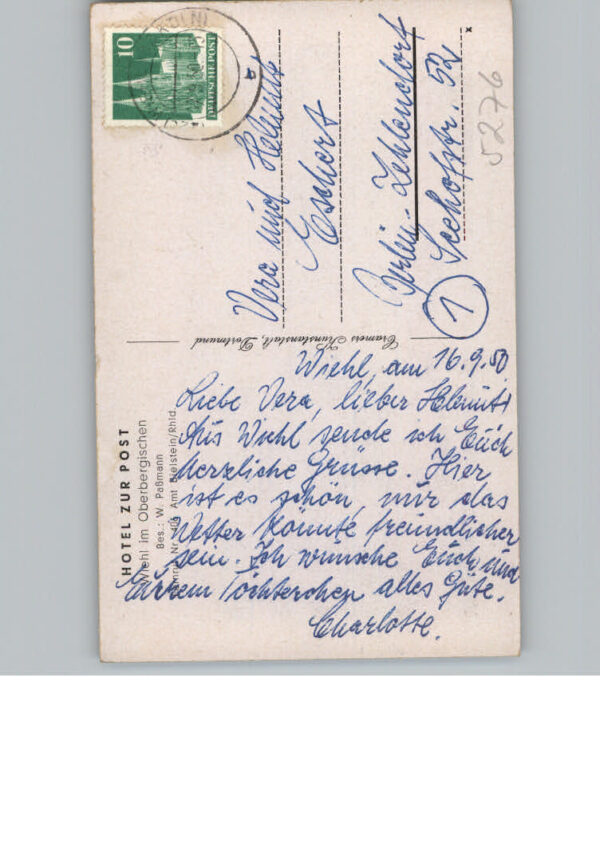 HOTEL ZUR POST
Wiehl im Oberbergischen
Bes.: W. Paßmann
Amt Bielstein/Rhld.
Cramers Kunstanstalt, Dortmund
10
DEUTSCHE POST
a
Vera und Helmut
Eschert
Berlin-Zehlendorf
Seehofstr. 52
1
x
5276
Wiehl, am 16.9.50
Liebe Vera, lieber Helmut!
Aus Wiehl sende ich Euch
herzliche Grüsse. Hier
ist es schön, nur das
Wetter könnte freundlicher
sein. Ich wünsche Euch und
Eurem Töchterchen alles Gute.
Charlotte.